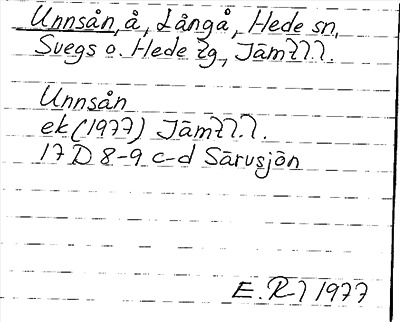 Unnsån, å, Långå, Hede sn,
Svegs o. Hede tg, Jämtl.l.
Unnsån
ek (1977) Jämtl.l.
17 D 8-9 c-d Särvsjön
E.R-l 1977